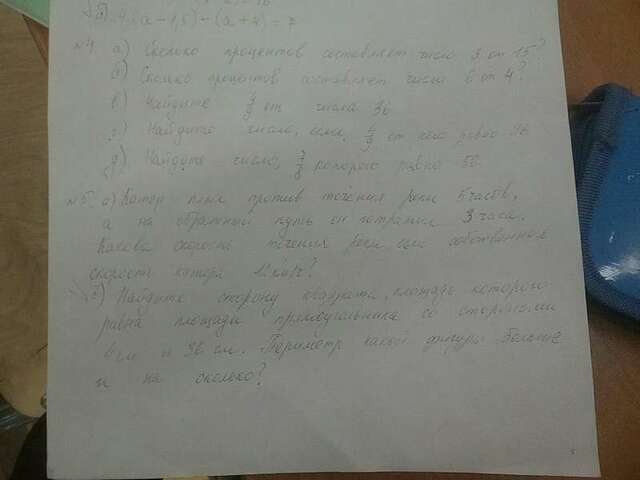 б) 4(a-1,5)-(a+4)=7
№4 а) Сколько процентов составляет число 3 от 15?
б) Сколько процентов составляет число 6 от 4?
в) Найдите 4/9 от числа 36
г) Найдите число, если 4/9 от него равно 36
д) Найдите число, 7/8 которого равно 56.
№5 а) Катер плыл против течения реки 5 часов,
а на обратный путь он потратил 3 часа.
Какова скорость течения реки если собственная
скорость катера 12 км/ч?
б) Найдите сторону квадрата, площадь которого
равна площади прямоугольника со сторонами
4 см и 36 см. Периметр какой фигуры больше
и на сколько?